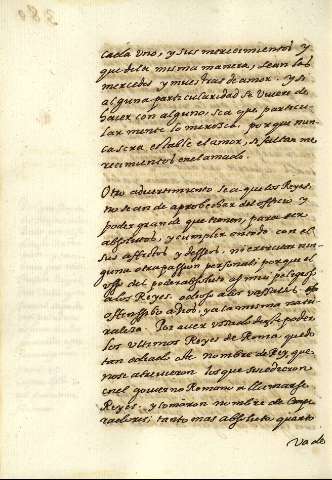 cada uno, y sus merecimientos y
que dela misma manera, sean las
mercedes y muestras de amor. y si
alguna particularidad se uuiere de
hacer con alguno, sea que particu
larmente lo meresca. porque nun
ca sera estable el amor, si faltan me
recimientos en el amado.
Otro aduertimiento sea que los Reyes
no se an de aprobechar del officio y
poder grande que tienen, para ser
absolutos, y cumplir con el
sus affectos y desseos. ni exercitar nin
guna otra passion personal: porque el
vsso del poder absoluto es muy peligroso
a los Reyes, odioso a los vassallos,
offensibo a dios, y a la misma natu
raleza. Por auer vssado deste poder
los vltimos Reyes de Roma quedo
tan odiado el nombre de Rey, que
no se atreuieron los que sucedieron
en el gouierno Romano a llamarse
Reyes. y tomaron nombre de Empe
radores; tanto mas absoluto quanto
va de